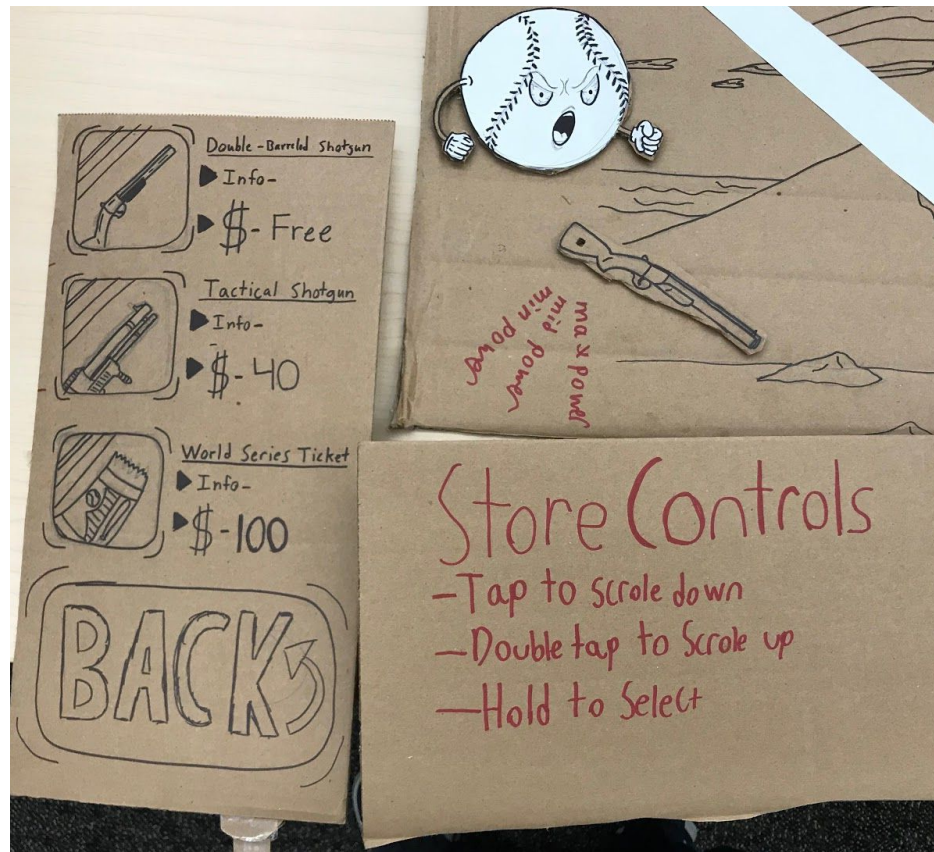 Double-Barreled Shotgun
Info-
$- Free
Tactical Shotgun
Info-
$-40
World Series Ticket
Info-
$-100
BACK
min power
mid power
max power
Store Controls
-Tap to scrole down
-Double tap to Scrole up
-Hold to Select